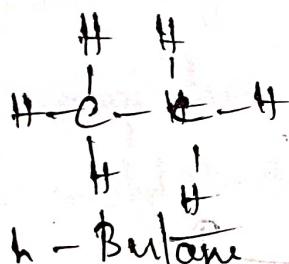 H H
H - C - C - H
H H
n - Butane